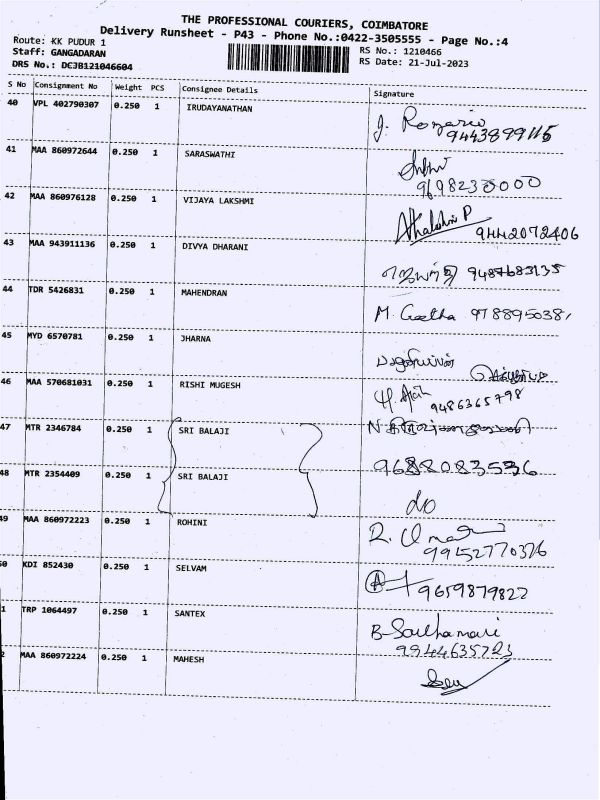 THE PROFESSIONAL COURIERS, COIMBATORE
Delivery Runsheet - P43 - Phone No.:0422-3505555 - Page No.:4
Route: KK PUDUR 1
RS No.: 1210466
Staff: GANGADARAN
RS Date: 21-Jul-2023
DRS No.: DCJB121046604
S No Consignment No Weight PCS Consignee Details Signature
40 VPL 402790307 0.250 1 IRUDAYANATHAN J. Rozario
9443899115
41 MAA 860972644 0.250 1 SARASWATHI
9698230000
42 MAA 860976128 0.250 1 VIJAYA LAKSHMI
9442072406
43 MAA 943911136 0.250 1 DIVYA DHARANI 9487683135
44 TDR 5426831 0.250 1 MAHENDRAN M. Geetha
45 MYD 6570781 0.250 1 JHARNA
46 MAA 570681031 0.250 1 RISHI MUGESH
9486365798
47 MTR 2346784 0.250 1 SRI BALAJI
9688083536
48 MTR 2354409 0.250 1 SRI BALAJI do
49 MAA 860972223 0.250 1 ROHINI
99152770376
50 KDI 852430 0.250 1 SELVAM 9659879822
1 TRP 1064497 0.250 1 SANTEX
9944635723
2 MAA 860972224 0.250 1 MAHESH